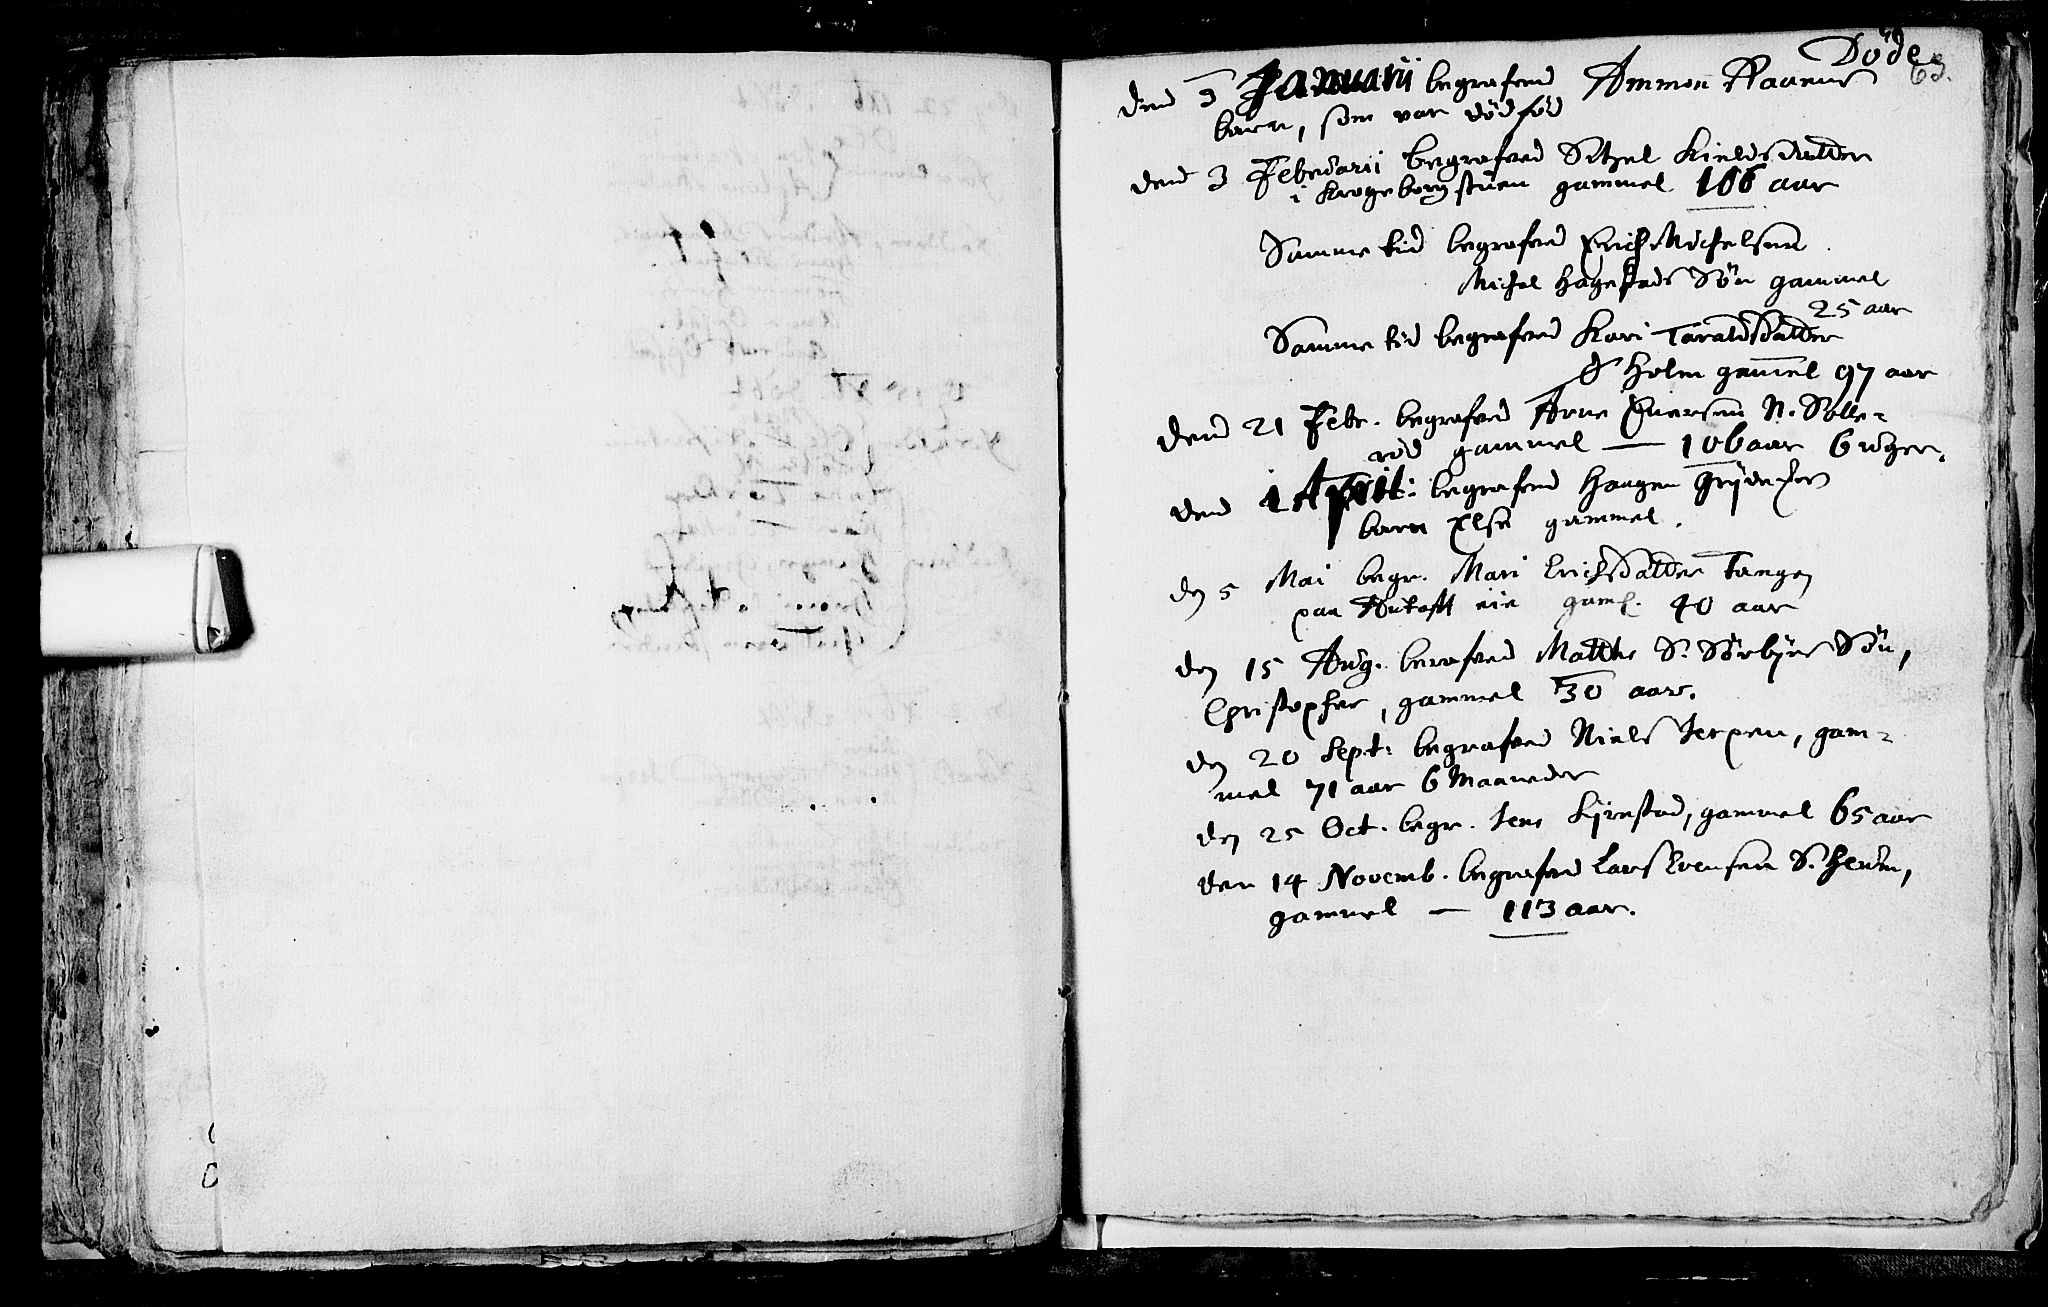 Döde
63.
Dend 3 Januarii begrafvend Ammon Raanus
barn, som var dödföd
Dend 3 Februarii begrafvend Sitzel Kieldsdatter
i Krogeborgstuen gammel 106 aar
Samme tid begrafvend Erich Michelsen
Michel Hagestads Sön gammel
25 aar
Samme tid begrafvend Kari Taraldsdatter
Holm gammel 97 aar
Dend 21 Febr. begrafvend Arne Iversen N. Solle-
röd gammel — 106 aar 6 uger.
Dend 1 April: begrafvend Haagen
barn Else gammel.
Den 5 Mai begr. Mari Erichsdatter Tangen
paa eie gaml. 40 aar
Den 15 Aug. berafvend Matths S. Sörbÿes Sön,
Christopher, gammel 30 aar.
Den 20 Sept: begrafvend Niels Terpen, gam-
mel 71 aar 6 Maaneder
Den 25 Oct. begr. Jens Kjrestad, gammel 65 aar
Den 14 Novemb. begrafvend Lars Evensen S.
gammel — 113 aar.